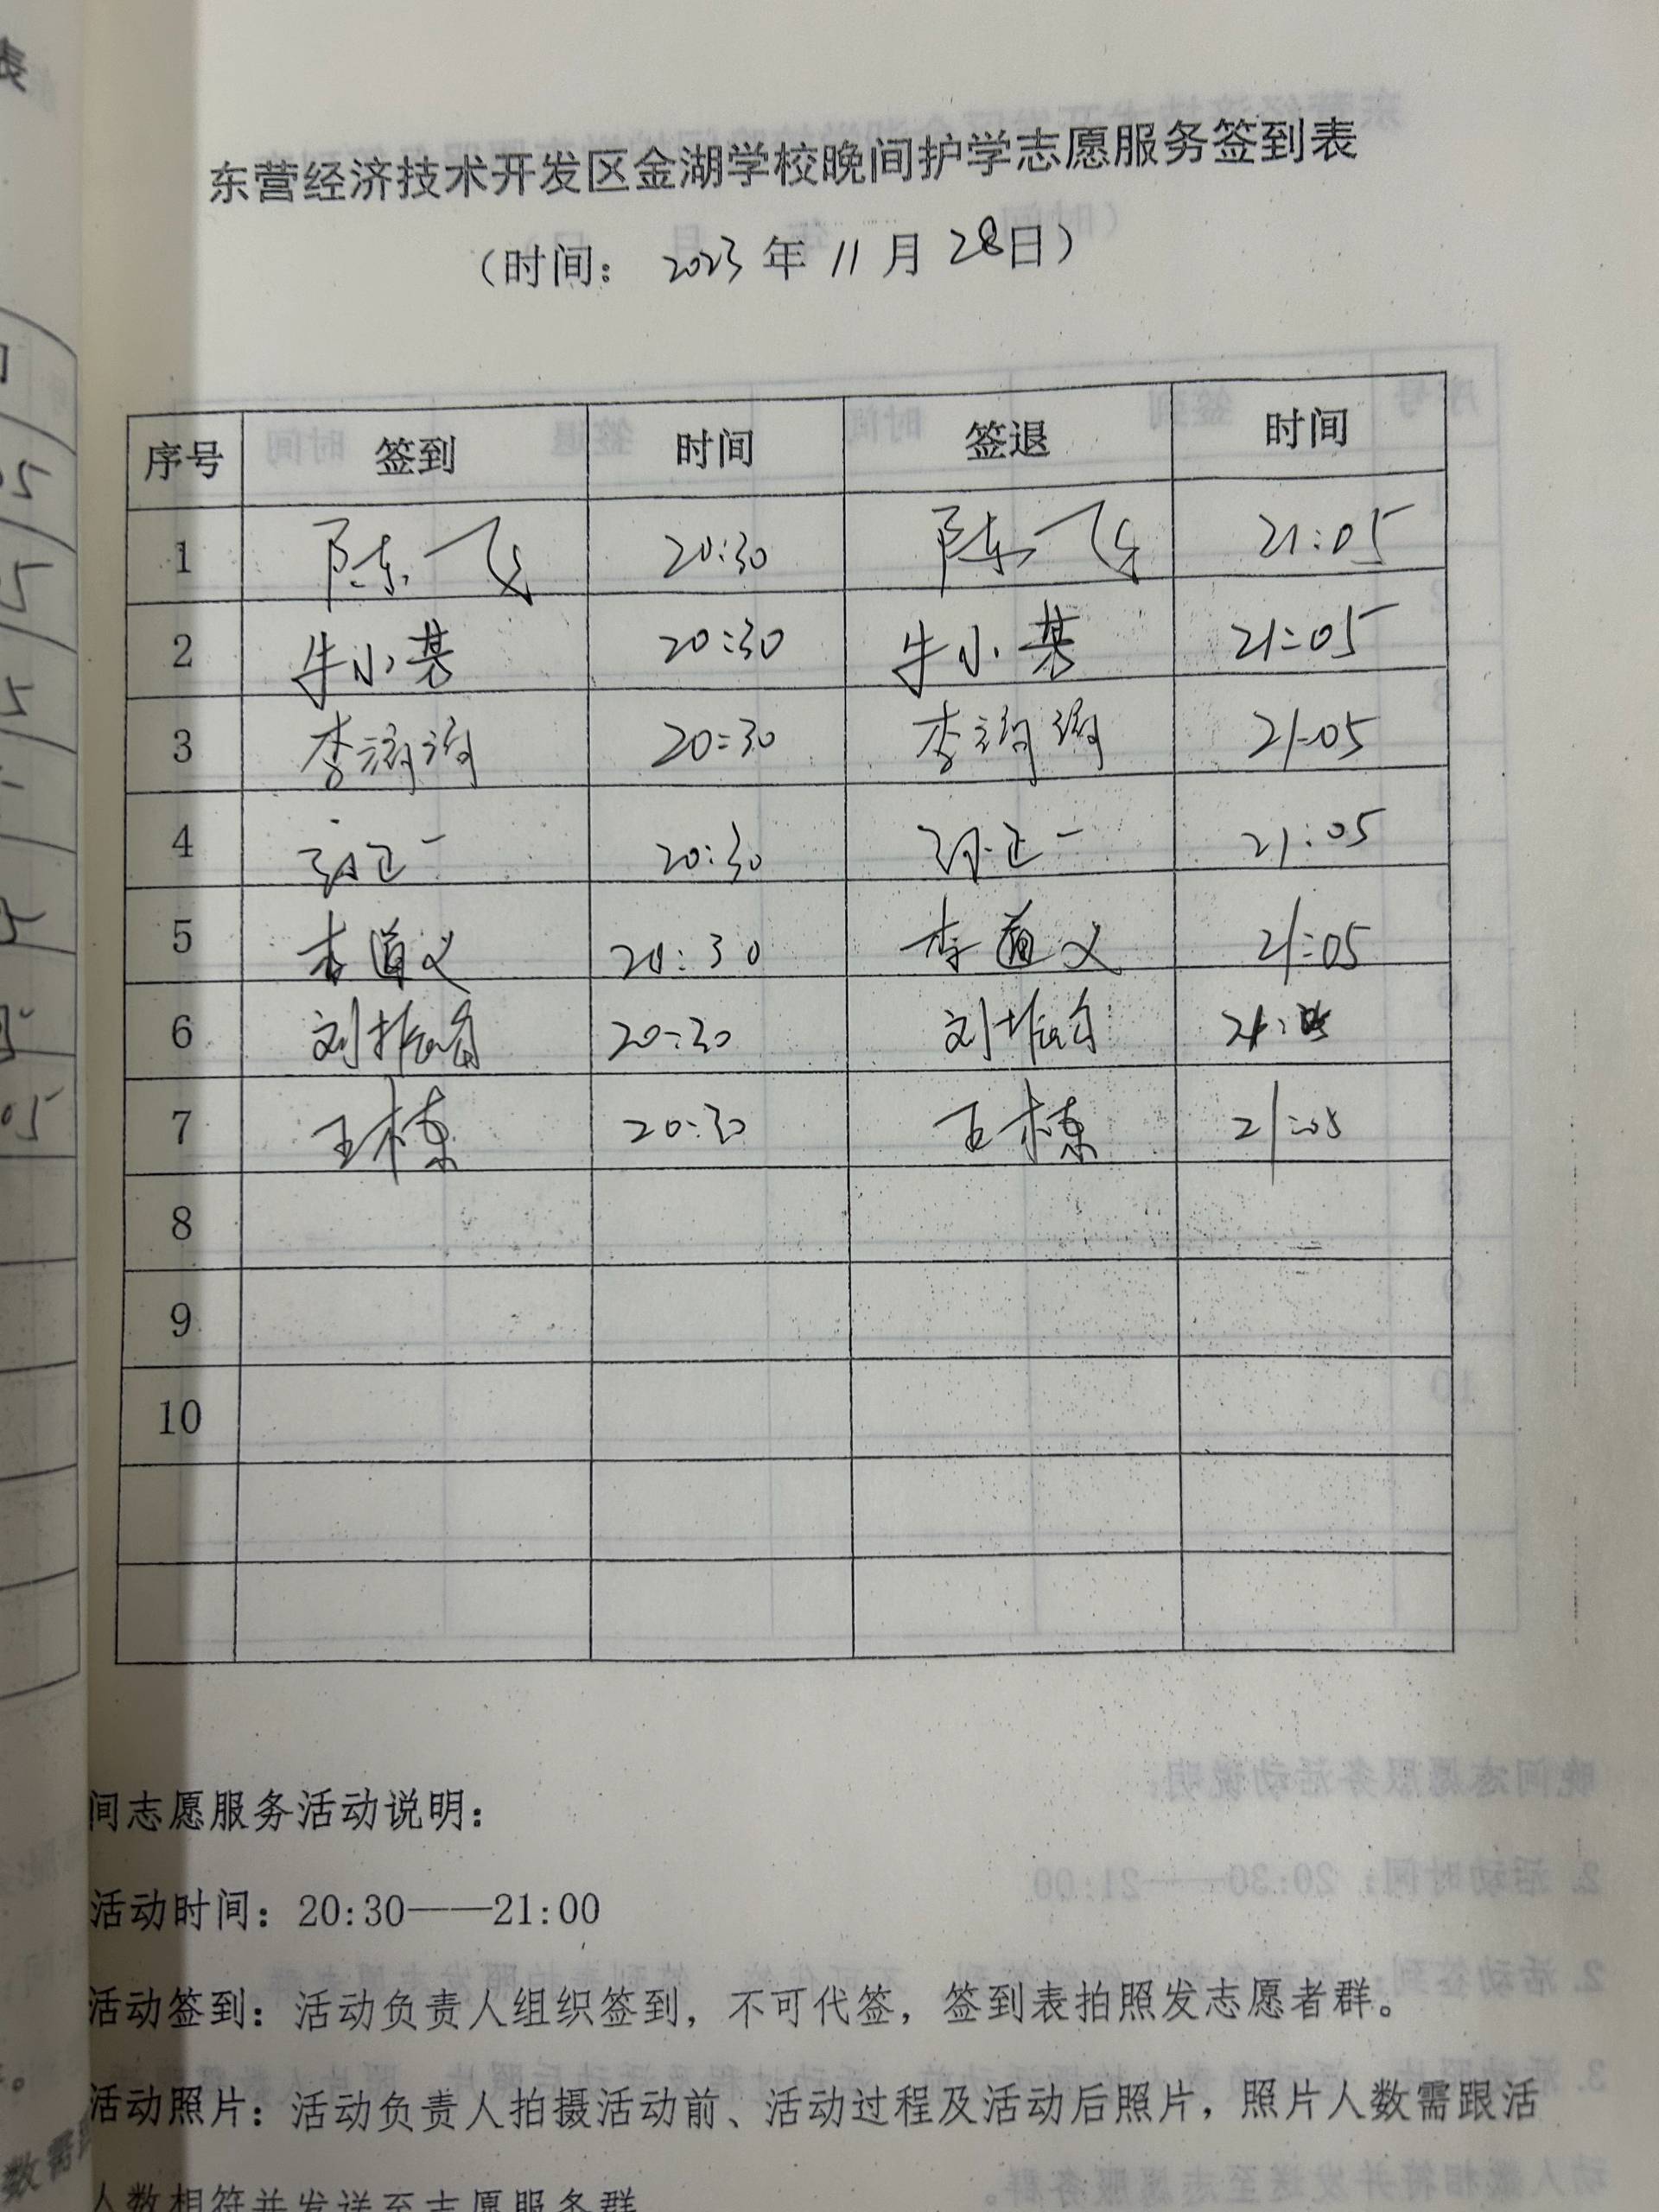 东营经济技术开发区金湖学校晚间护学志愿服务签到表
（时间： 2023 年 11 月 28日）
序号 签到 时间 签退 时间
1 陈飞 20:30 陈飞 21:05
2 牛小基 20:30 牛小基 21:05
3 李 20:30 李 21:05
4 孙正一 20:30 孙正一 21:05
5 李道义 20:30 李道义 21:05
6 刘振 20:30 刘振 21:05
7 王栋 20:30 王栋 21:05
8
9
10
间志愿服务活动说明：
活动时间：20:30——21:00
活动签到：活动负责人组织签到，不可代签，签到表拍照发志愿者群。
活动照片：活动负责人拍摄活动前、活动过程及活动后照片，照片人数需跟活
人数相符并发送至志愿服务群